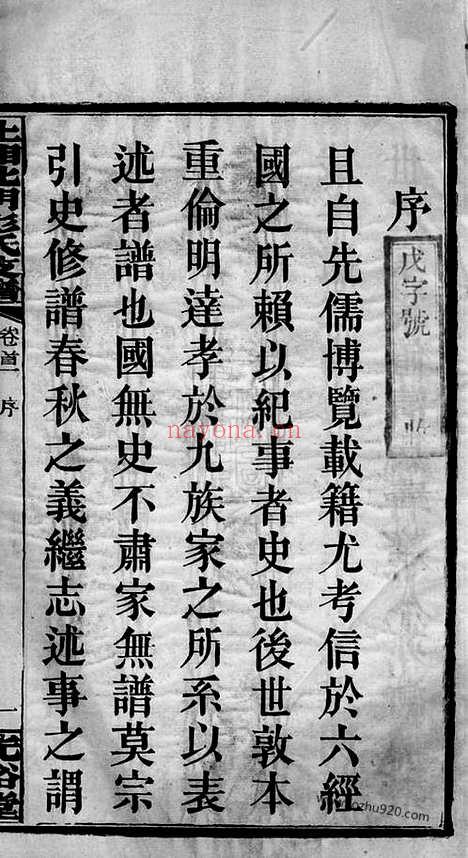 序
戊字號
且自先儒博覽載籍尤考信於六經
國之所賴以紀事者史也後世敦本
重倫明達孝於九族家之所系以表
述者譜也國無史不肅家無譜莫宗
引史修譜春秋之義繼志述事之謂
上湘北門彭氏支譜
卷首
序
一
光裕堂
nayona.cn